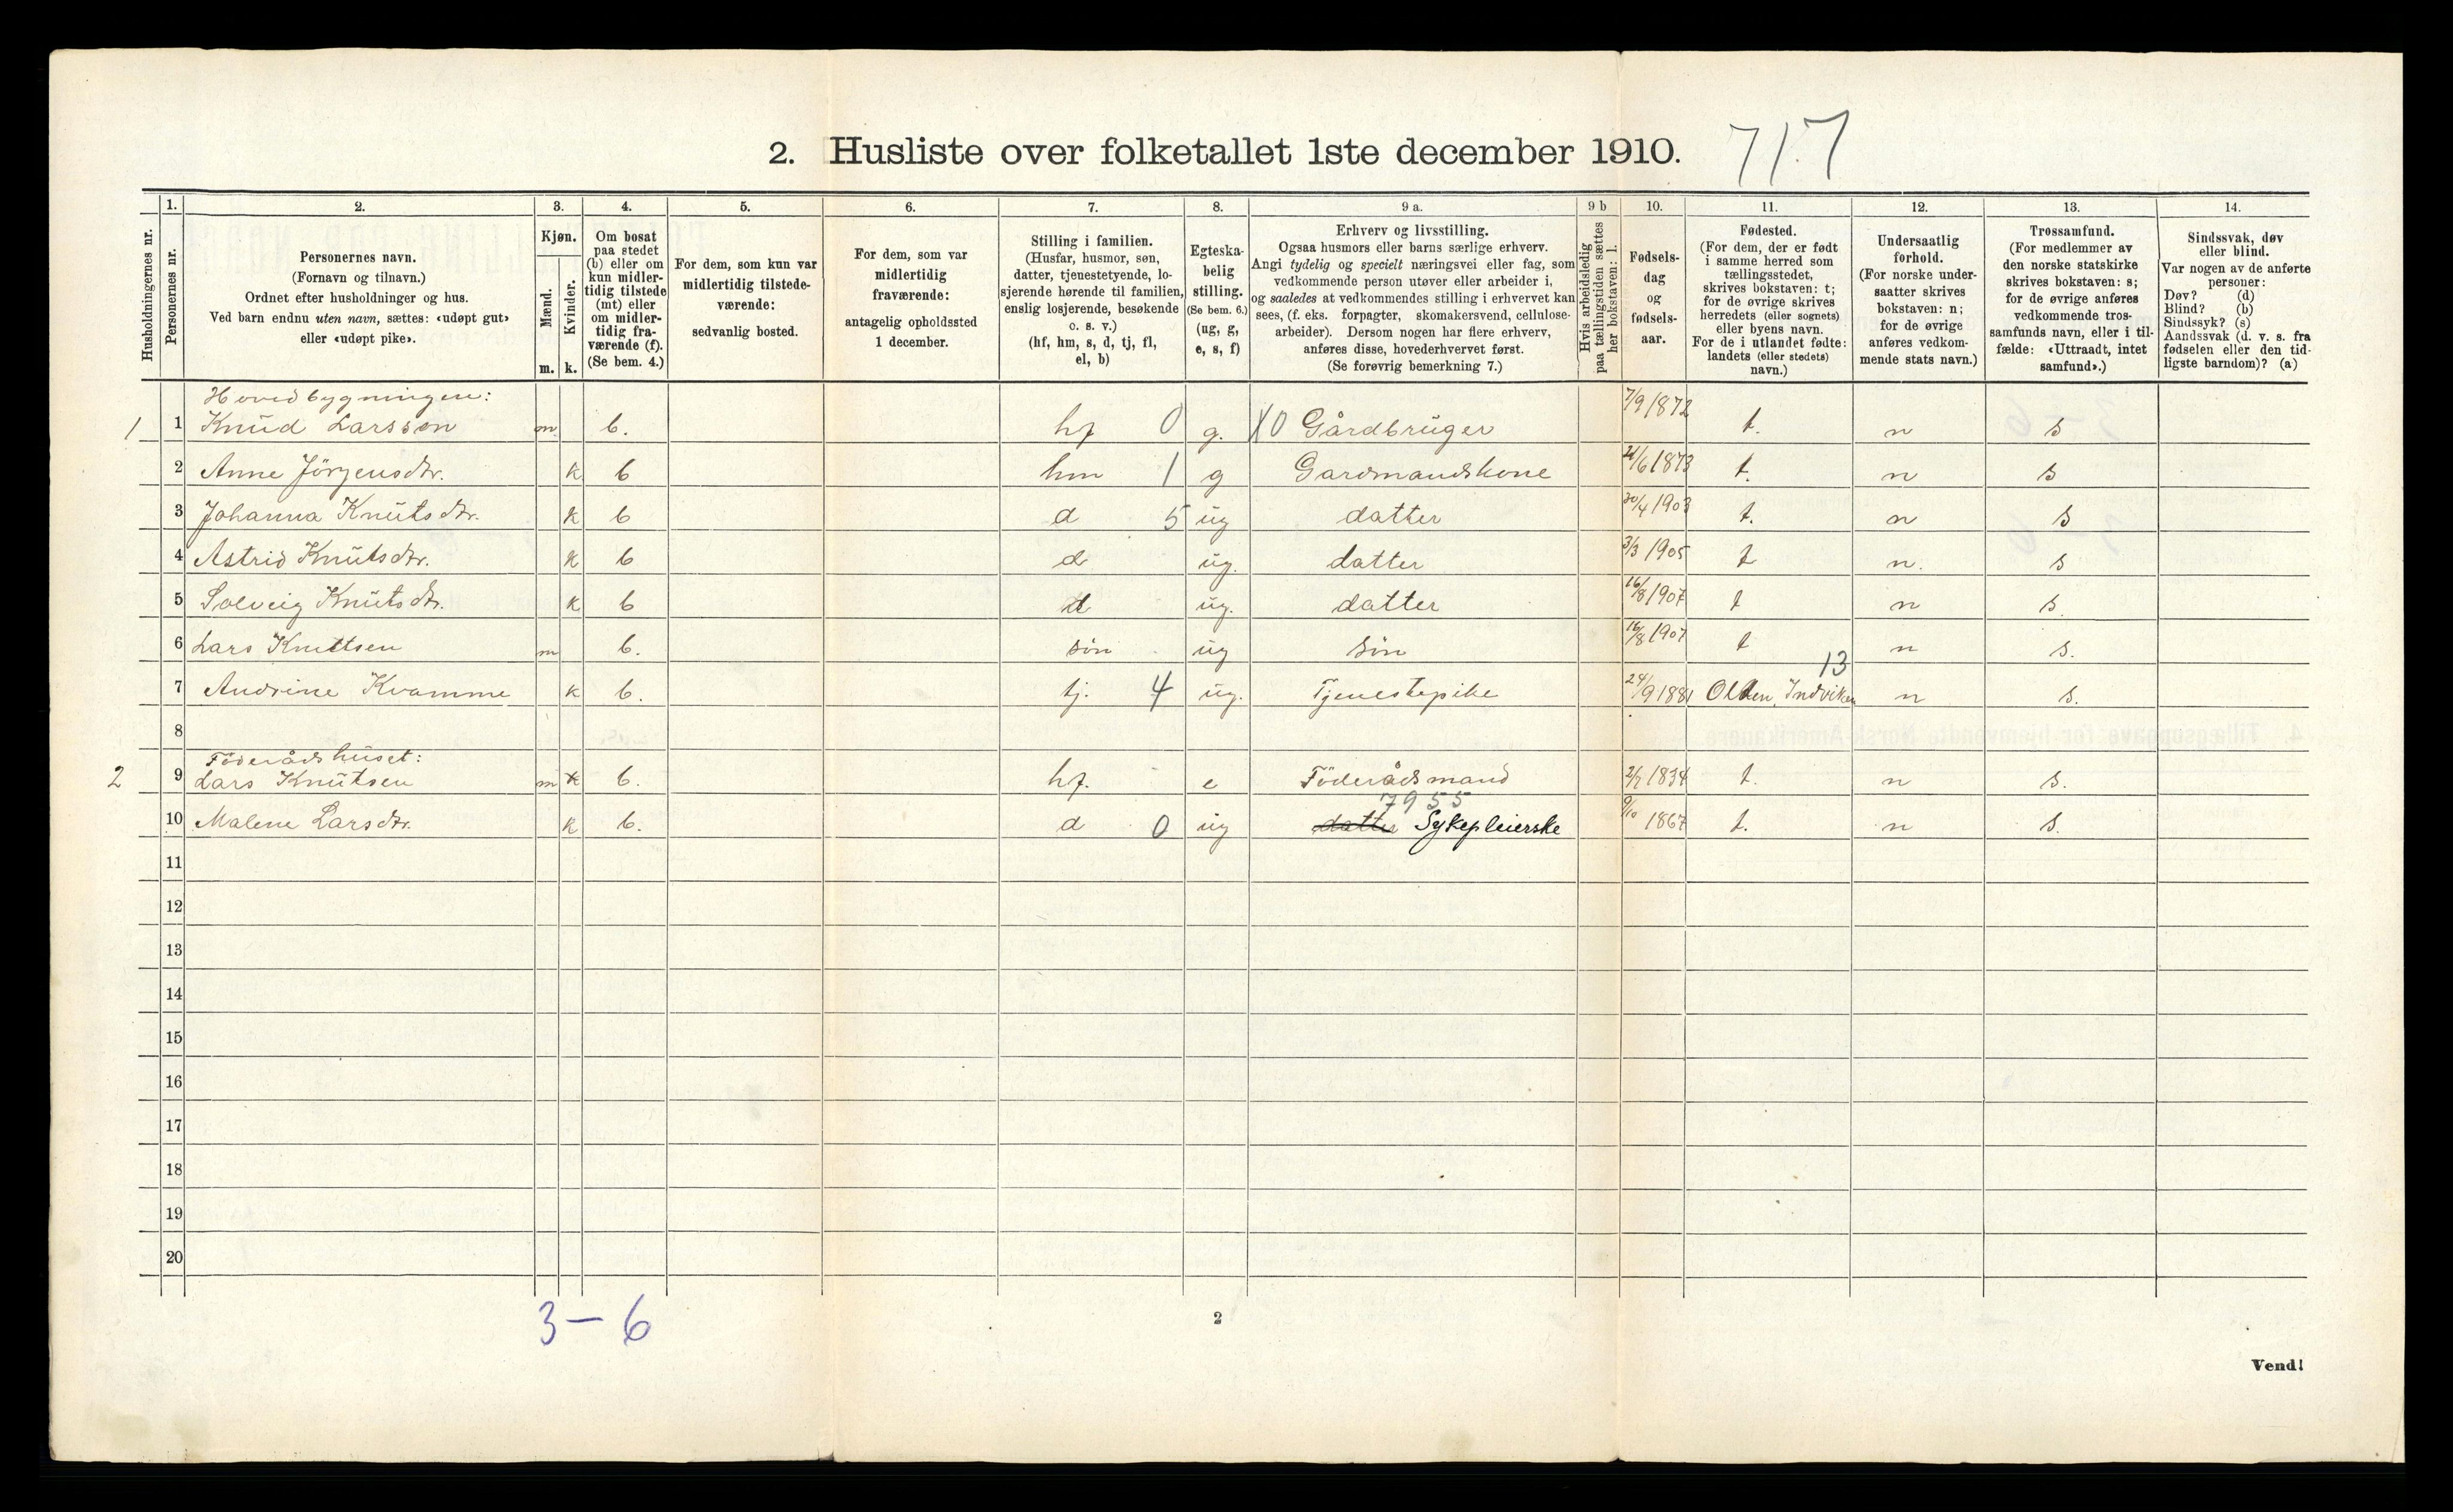 2. Husliste over folketallet 1ste december 1910. 717
Husholdningernes nr.
1. Personernes nr.
2.
Personernes navn.
(Fornavn og tilnavn.)
Ordnet efter husholdninger og hus.
Ved barn endnu uten navn, sættes: «udøpt gut»
eller «udøpt pike».
3.
Kjøn.
Mænd. Kvinder.
m. k.
4.
Om bosat
paa stedet
(b) eller om
kun midler-
tidig tilstede
(mt) eller
om midler-
tidig fra-
værende (f).
(Se bem. 4.)
5.
For dem, som kun var
midlertidig tilstede-
værende:
sedvanlig bosted.
6.
For dem, som var
midlertidig
fraværende:
antagelig opholdssted
1 december.
7.
Stilling i familien.
(Husfar, husmor, søn,
datter, tjenestetyende, lo-
sjerende hørende til familien,
enslig losjerende, besøkende
o. s. v.)
(hf, hm, s, d, tj, fl,
el, b)
8.
Egteska-
belig
stilling.
(Se bem. 6.)
(ug, g,
e, s, f)
9 a.
Erhverv og livsstilling.
Ogsaa husmors eller barns særlige erhverv.
Angi tydelig og specielt næringsvei eller fag, som
vedkommende person utøver eller arbeider i,
og saaledes at vedkommendes stilling i erhvervet kan
sees, (f. eks. forpagter, skomakersvend, cellulose-
arbeider). Dersom nogen har flere erhverv,
anføres disse, hovederhvervet først.
(Se forøvrig bemerkning 7.)
9 b
Hvis arbeidsledig
paa tællingstiden sættes
her bokstaven: l.
10.
Fødsels-
dag
og
fødsels-
aar.
11.
Fødested.
(For dem, der er født
i samme herred som
tællingsstedet,
skrives bokstaven: t;
for de øvrige skrives
herredets (eller sognets)
eller byens navn.
For de i utlandet fødte:
landets (eller stedets)
navn.)
12.
Undersaatlig
forhold.
(For norske under-
saatter skrives
bokstaven: n;
for de øvrige
anføres vedkom-
mende stats navn.)
13.
Trossamfund.
(For medlemmer av
den norske statskirke
skrives bokstaven: s;
for de øvrige anføres
vedkommende tros-
samfunds navn, eller i til-
fælde: «Uttraadt, intet
samfund».)
14.
Sindssvak, døv
eller blind.
Var nogen av de anførte
personer:
Døv? (d)
Blind? (b)
Sindssyk? (s)
Aandssvak (d. v. s. fra
fødselen eller den tid-
ligste barndom)? (a)
Hovedbygningen:
1 1 Knud Larssen m b. hf 0 g. X0 Gårdbruger 7/9 1872 t. n s
2 Anne Jörgensdtr. k b hm 1 g Gardmandskone 21/6 1873 t. n s
3 Johanna Knutsdtr. k b d 5 ug datter 30/4 1903 t. n s
4 Astrid Knutsdtr. k b d ug. datter 3/3 1905 t n. s
5 Solveig Knutsdtr. k b d ug. datter 16/8 1907 t n s.
6 Lars Knuttsen m b. sön ug sön 16/8 1907 t n s.
13
7 Andrine Kvamme k b. tj. 4 ug. Tjenestepike 24/9 1881 Olden, Indviken n s.
8
Föderådshuset:
2 9 Lars Knutsen m k b. hf. e Föderådsmand 2/7 1834 t. n s.
7955
10 Malene Larsdtr. k b. d 0 ug datter Sykepleierske 9/10 1867 t. n s.
11
12
13
14
15
16
17
18
19
20
3 - 6
2
Vend!